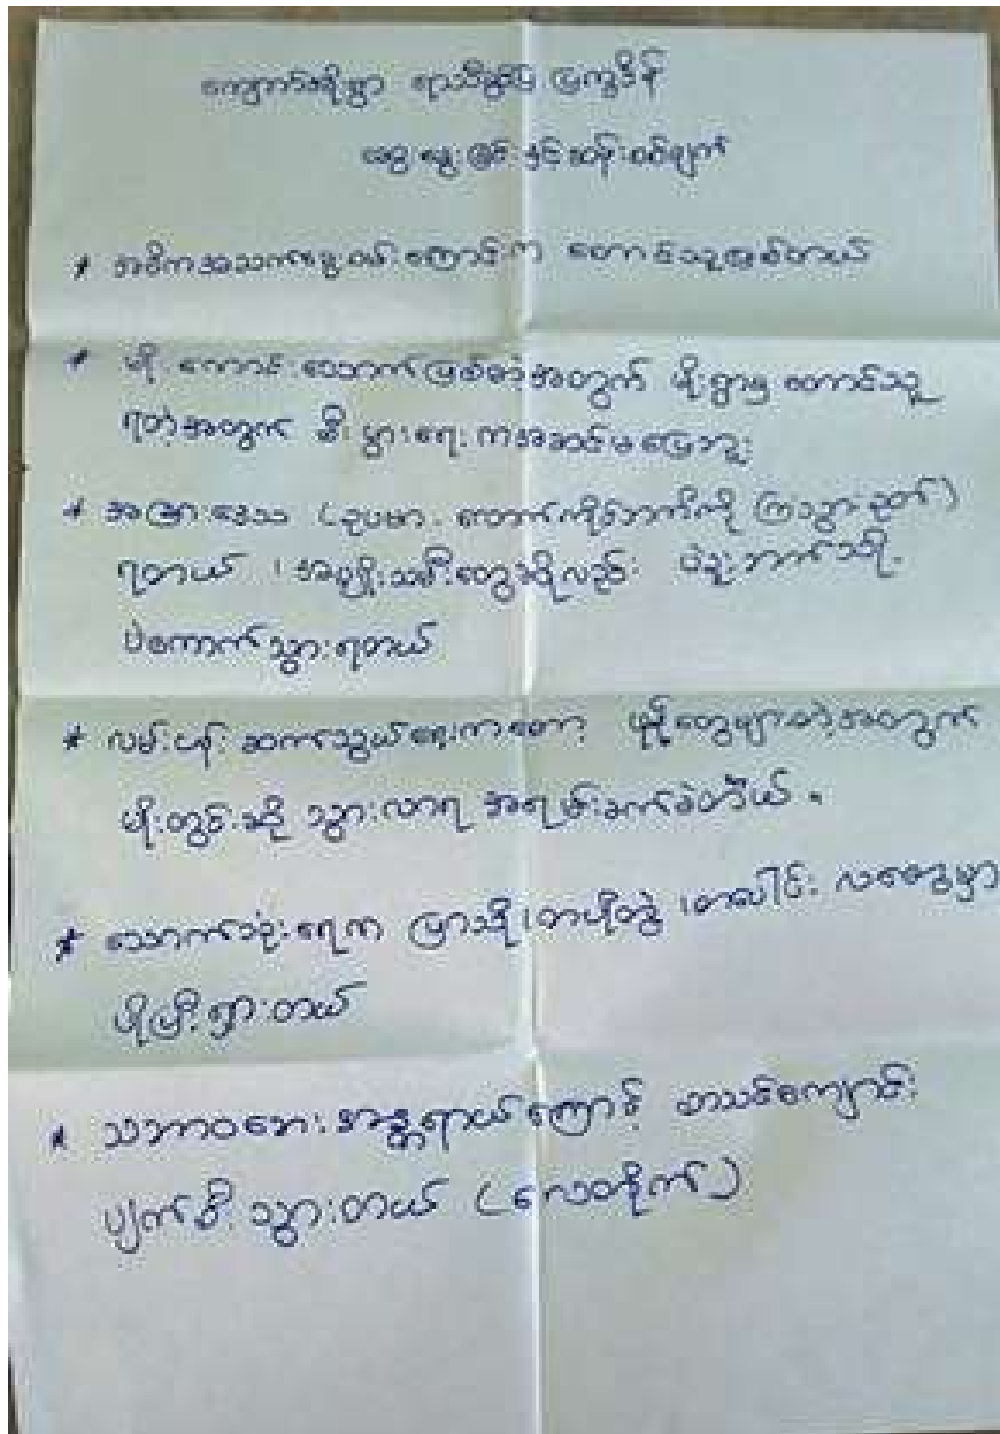 ကျောက်ဆိုမှာ ရာသီခွင်ပြ ပြက္ခဒိန်
ဆွေးနွေးခြင်းနှင့်ဆန်းစစ်ချက်
* အဓိကအသက်မွေးဝမ်းကြောင်းက တောင်သူဖြစ်တယ်
* မိုးကောင်းသောက်ဖြစ်တဲ့အတွက် မိုးရွာမှ တောင်သူ
ရတဲ့အတွက် စီးပွားရေးကအဆင်မပြေဘူး
* အခြားဒေသ (ဥပမာ- တောင်ကိုင်ဘက်ကို ကြံသွားခုတ်)
ရတယ် ၊ အမျိုးသမီးတွေဆိုလည်း ပဲခူးဘက်သို့
ပဲကောက်သွားရတယ်
* လမ်းပန်းဆက်သွယ်ရေးကတော့ ဖုန်တွေများတဲ့အတွက်
မိုးတွင်းဆို သွားလာရ အရမ်းခက်ခဲတယ်။
* သောက်သုံးရေက ပြာသို၊တပို့တွဲ၊တပေါင်း လတွေမှာ
ပိုပြီးရှားတယ်
* သဘာဝဘေးအန္တရာယ်ကြောင့် စာသင်ကျောင်း
ပျက်စီးသွားတယ် (လေတိုက်)